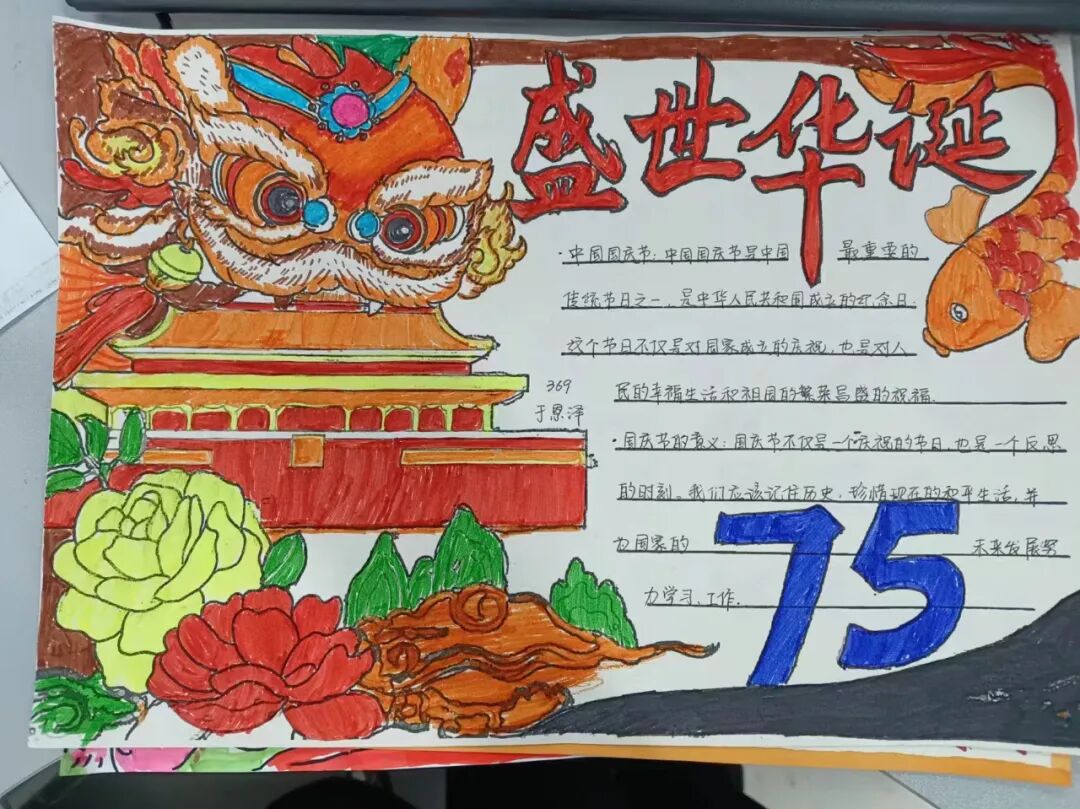 盛世华诞
·中国国庆节:中国国庆节是中国 最重要的
传统节日之一,是中华人民共和国成立的纪念日.
这个节日不仅是对国家成立的庆祝,也是对人
民的幸福生活和祖国的繁荣昌盛的祝福.
369
于恩泽
·国庆节的意义:国庆节不仅是一个庆祝的节日,也是一个反思
的时刻。我们应该记住历史,珍惜现在的和平生活,并
为国家的 未来发展努
力学习、工作.
75